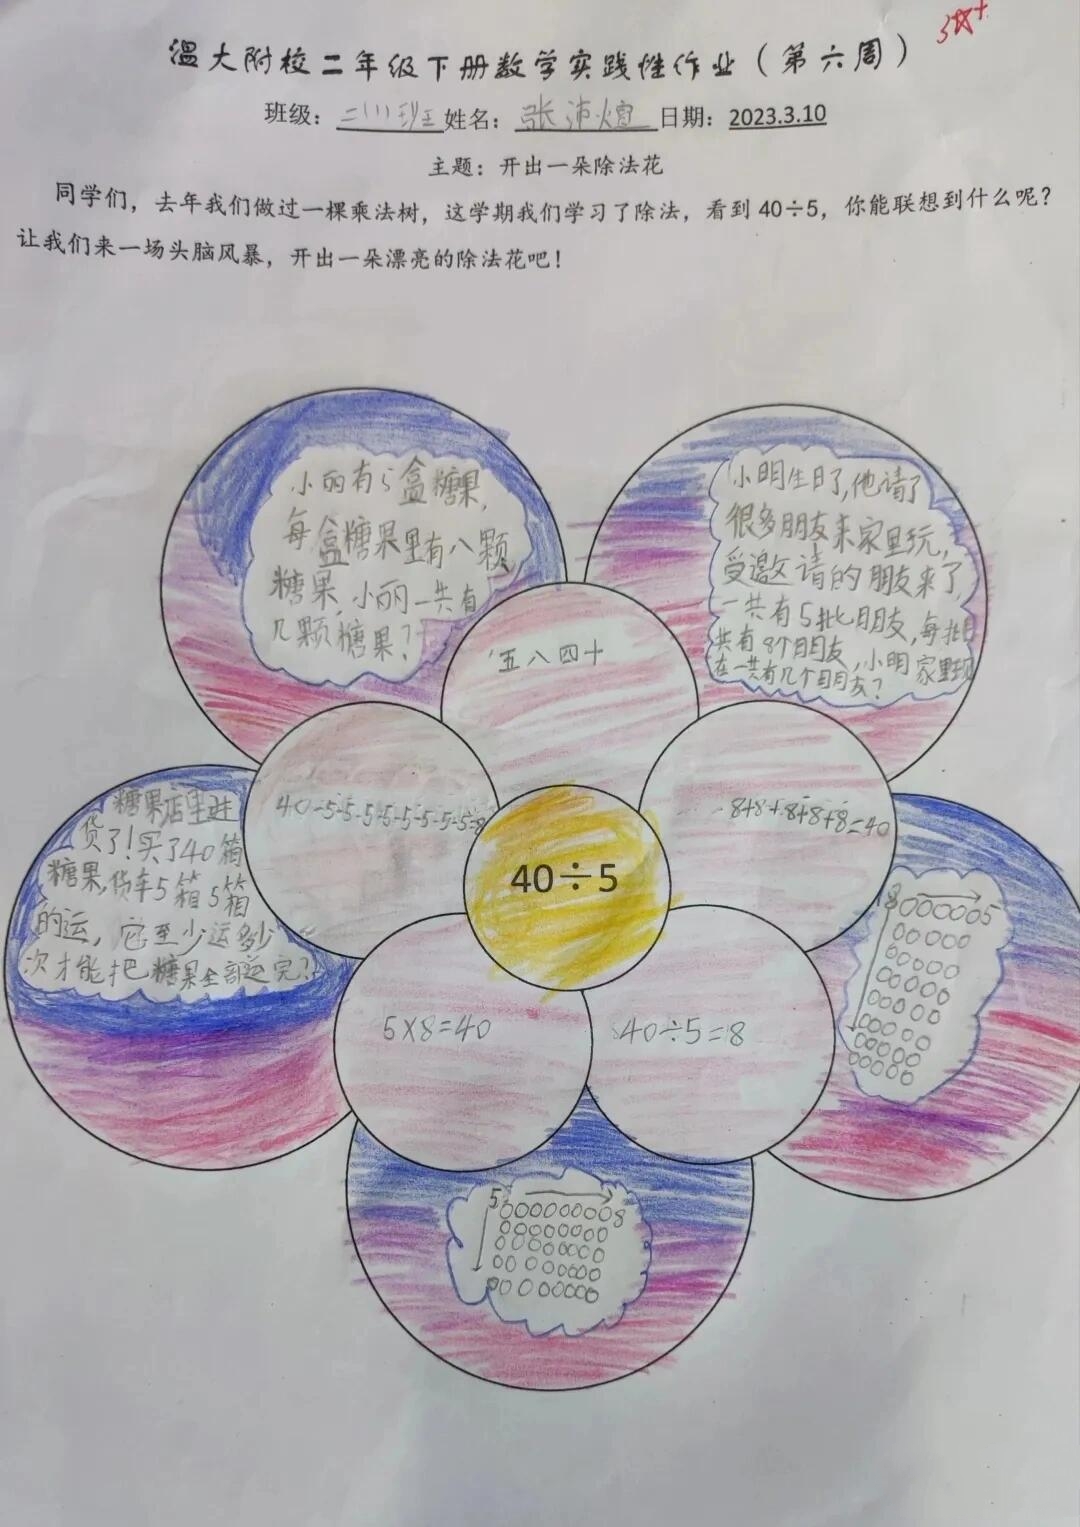 3☆+
温大附校二年级下册数学实践性作业（第六周）
班级：二(1)班 姓名：张沛煊 日期：2023.3.10
主题：开出一朵除法花
同学们，去年我们做过一棵乘法树，这学期我们学习了除法，看到 40÷5，你能联想到什么呢？
让我们来一场头脑风暴，开出一朵漂亮的除法花吧！
小丽有5盒糖果，
每盒糖果里有八颗
糖果，小丽一共有
几颗糖果？
小明生日了，他请了
很多朋友来家里玩，
受邀请的朋友来了，
一共有5批朋友，每批
共有8个朋友，小明家里现
在一共有几个朋友？
五八四十
40-5-5-5-5-5-5-5-5=
8+8+8+8+8=40
糖果店里进
货了！买了40箱
糖果，货车5箱5箱
的运，它至少运多少
次才能把糖果全部运完？
40÷5
5×8=40
40÷5=8
8 5
5 8